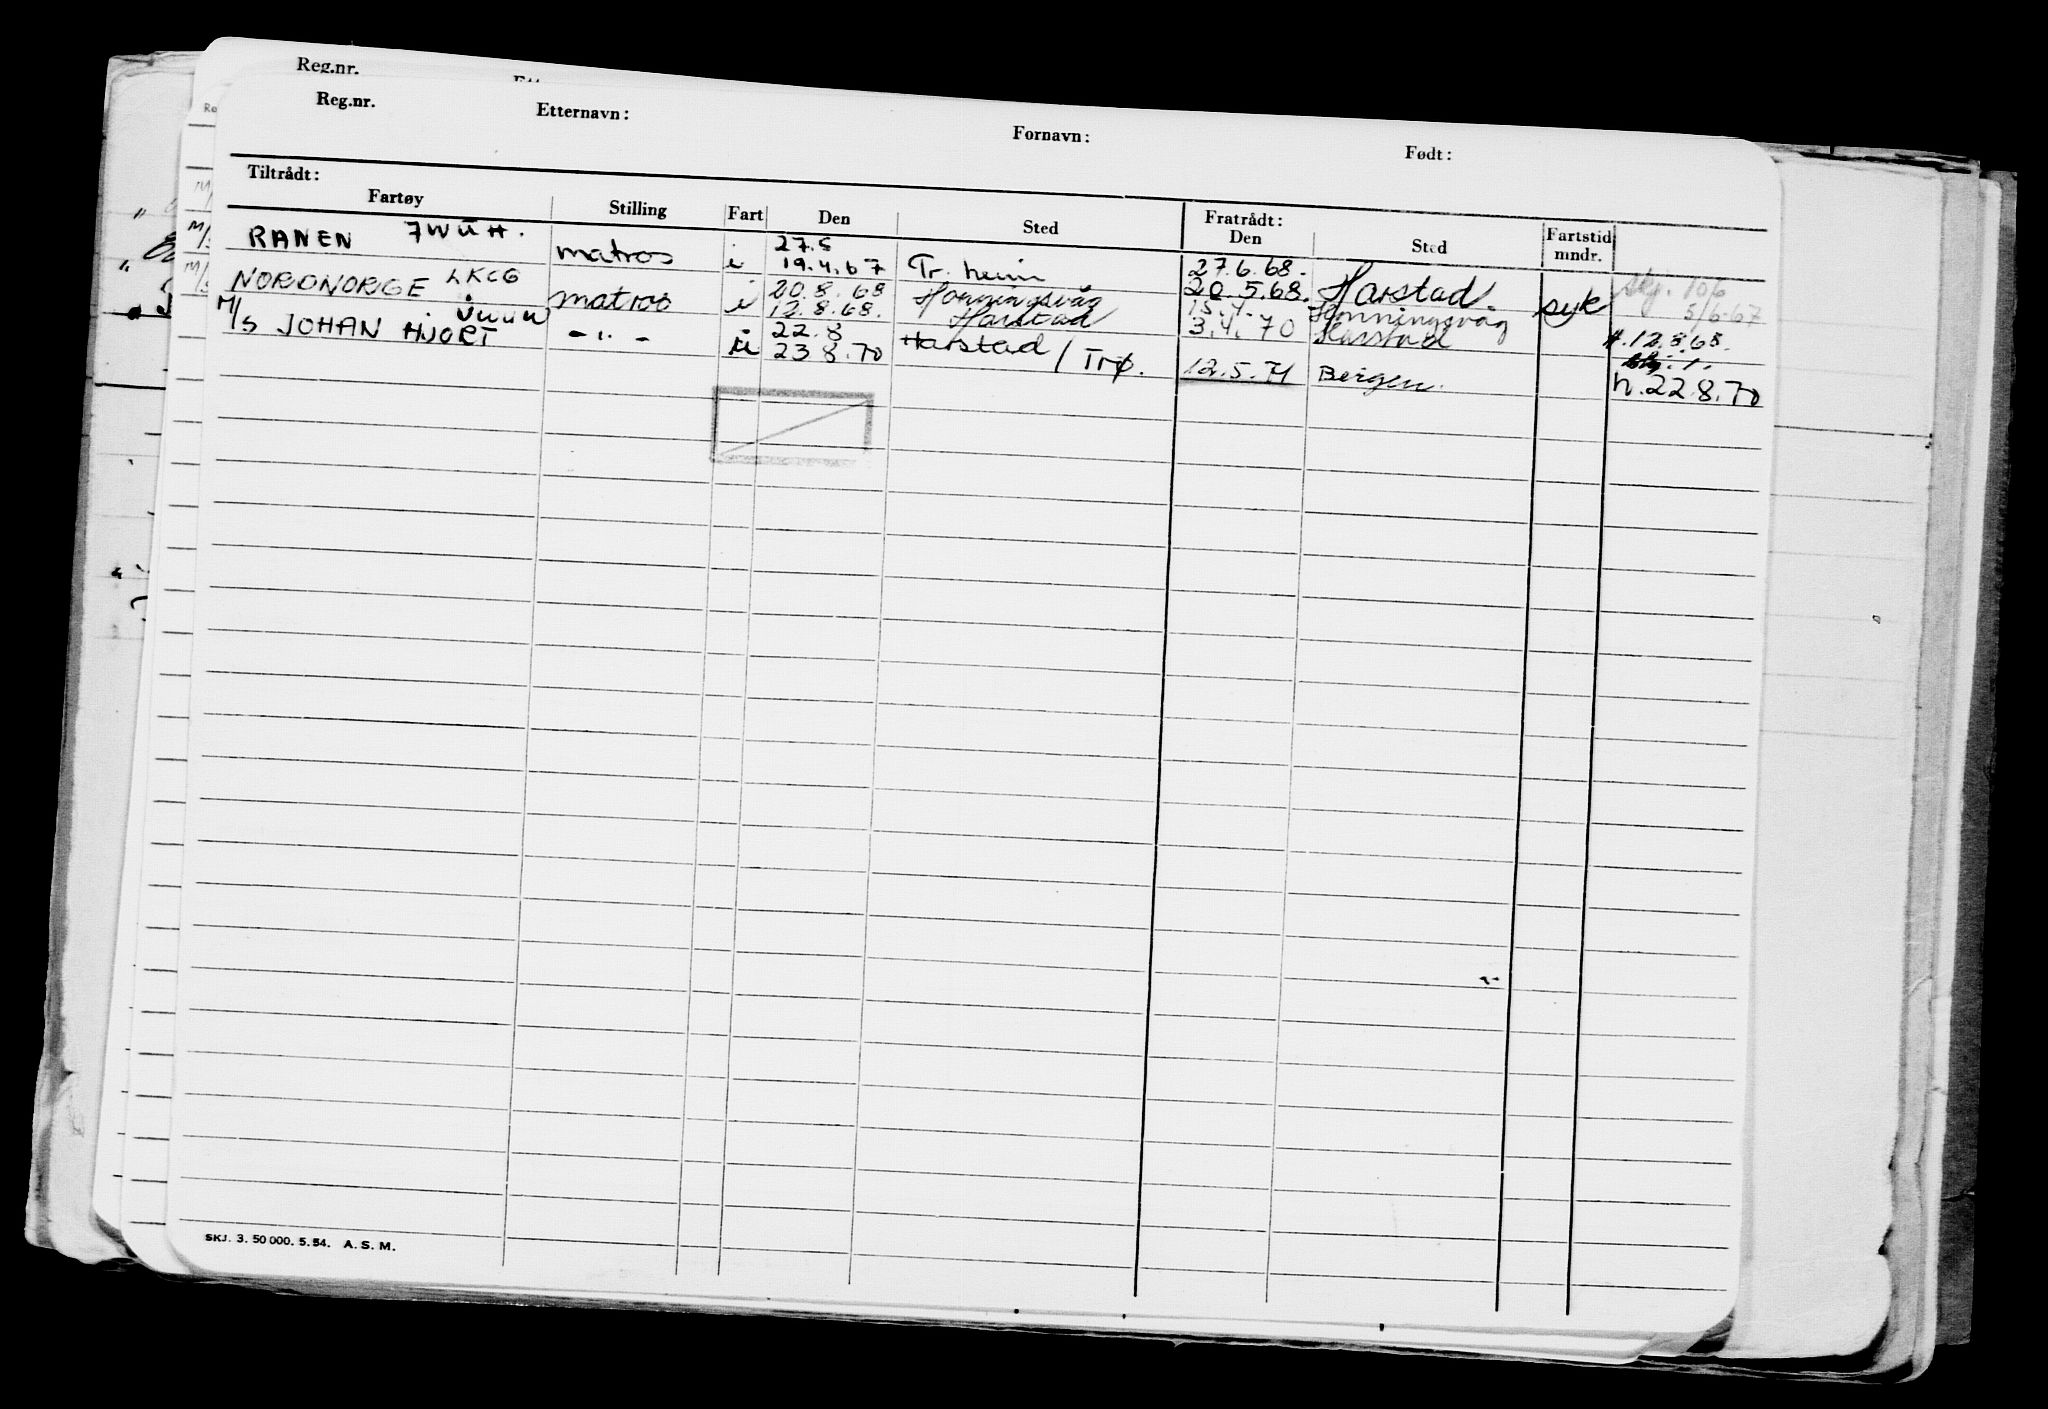 Reg.nr.
Reg.nr. Etternavn: Fornavn: Født:
Tiltrådt: Fratrådt:
Fartøy Stilling Fart Den Sted Den Sted Fartstid mndr.
M/ RANEN JWUH. matros i 27.5 19.4.67 Tr.heim 27.6.68. 20.5.68. Harstad syk 5/6-67
M/s NORDNORGE LKCG matros i 20.8.68 12.8.68. Honningsvåg Harstad 15.4. 3.4.70 Honningsvåg Harstad H.12.8.68.
M/s JOHAN HJORT - " - 22.8 23 8.70 Harstad / Trø. 12.5.71 Bergen. h.22.8.70
SKJ. 3. 50 000. 5. 54. A. S. M.